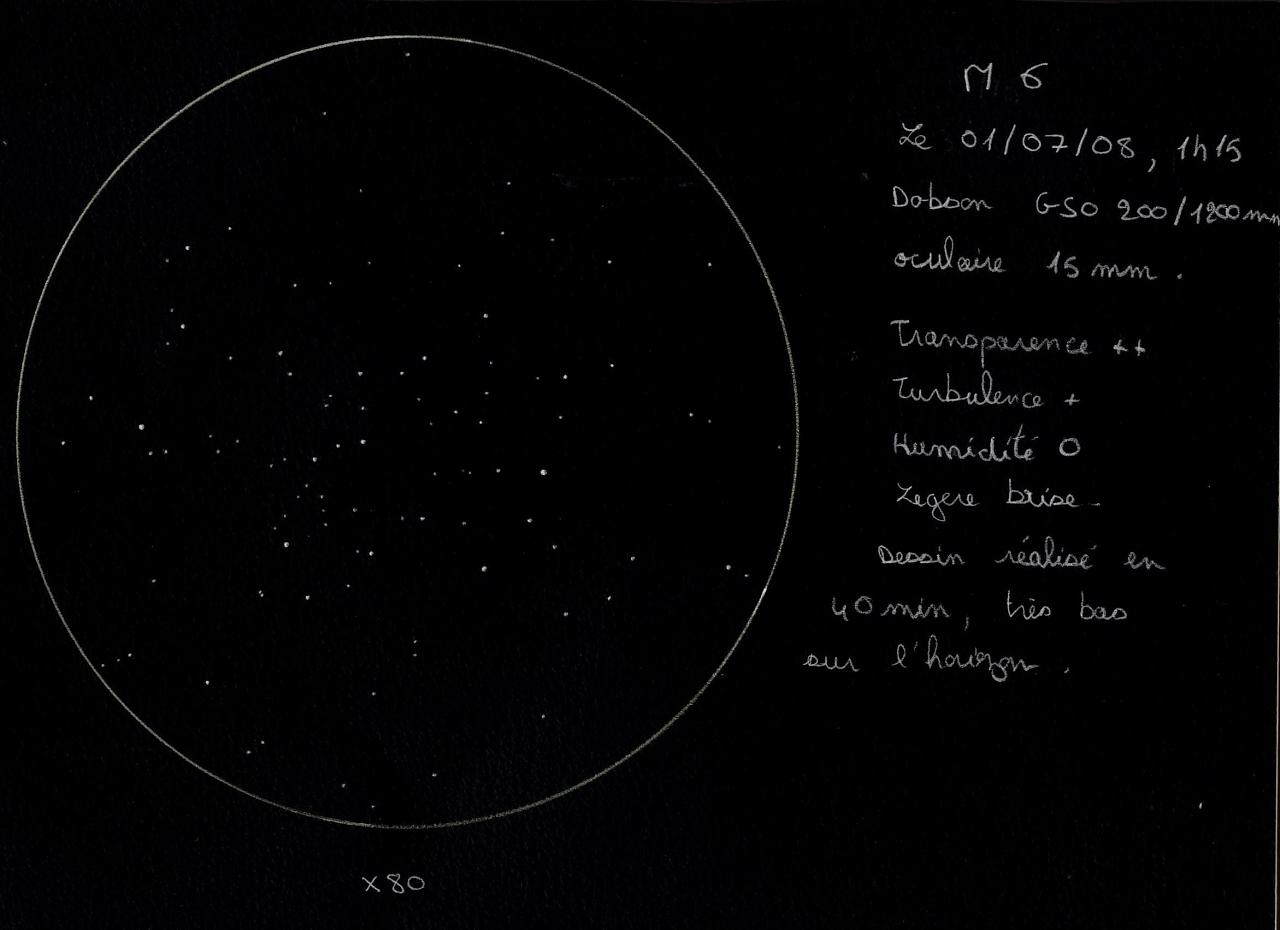 M 6
Le 01/07/08, 1h15
Dobson GSO 200/1200mm
oculaire 15 mm.
Transparence ++
Turbulence +
Humidité 0
Legere brise
Dessin réalisé en
40 min, très bas
sur l'horizon.
x80